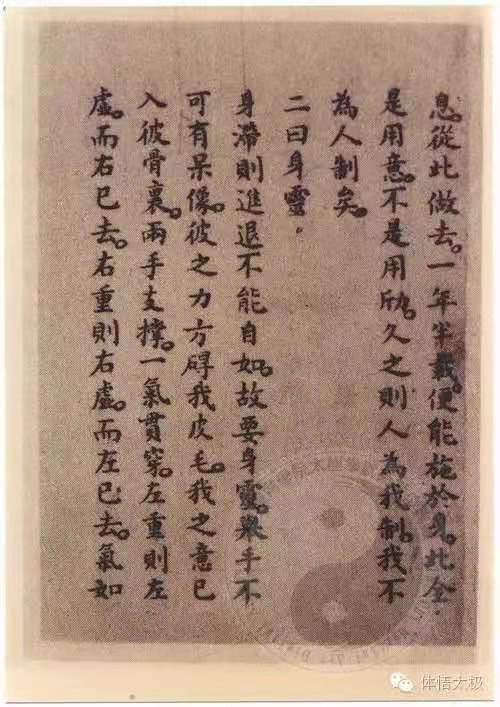 息。從此做去。一年半載。便能施於身。此全
是用意。不是用劤。久之則人為我制。我不
為人制矣。
二曰身靈。
身滯則進退不能自如。故要身靈。舉手不
可有呆像。彼之力方碍我皮毛。我之意已
入彼骨裏。兩手支撐。一氣貫穿。左重則左
虛。而右已去。右重則右虛。而左已去。氣如
体悟太极